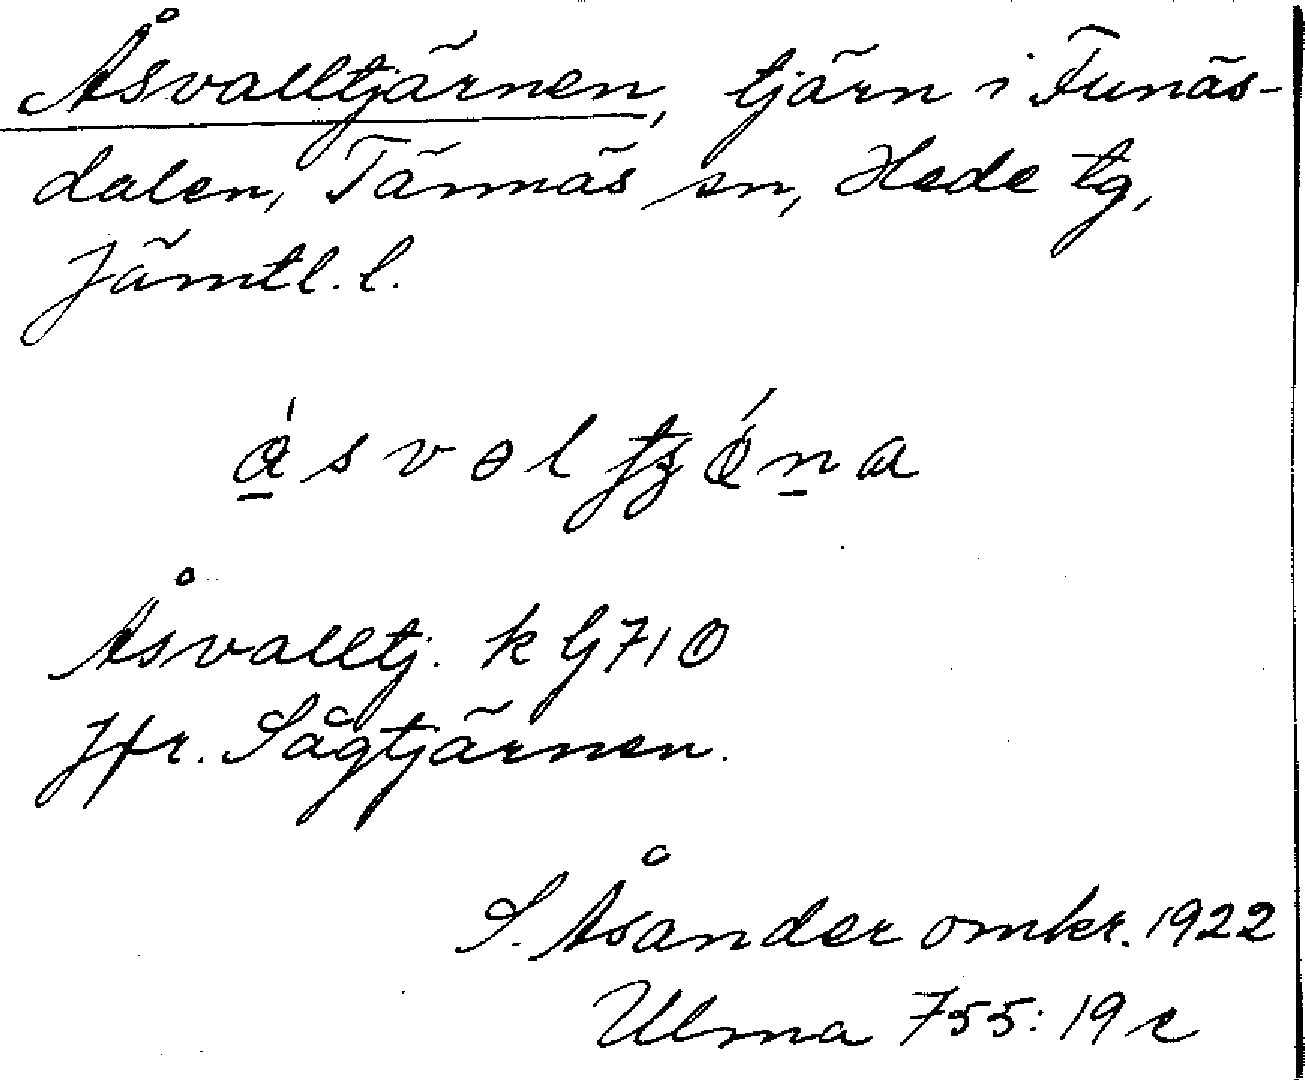 Åsvalltjärnen, tjärn i Funäs-
dalen, Tännäs sn, Hede tg,
Jämtl. l.
Åsvalltj. k G 710
Jfr. Sågtjärnen.
S. Åsander omkr. 1922
Ulma 755: 19 c